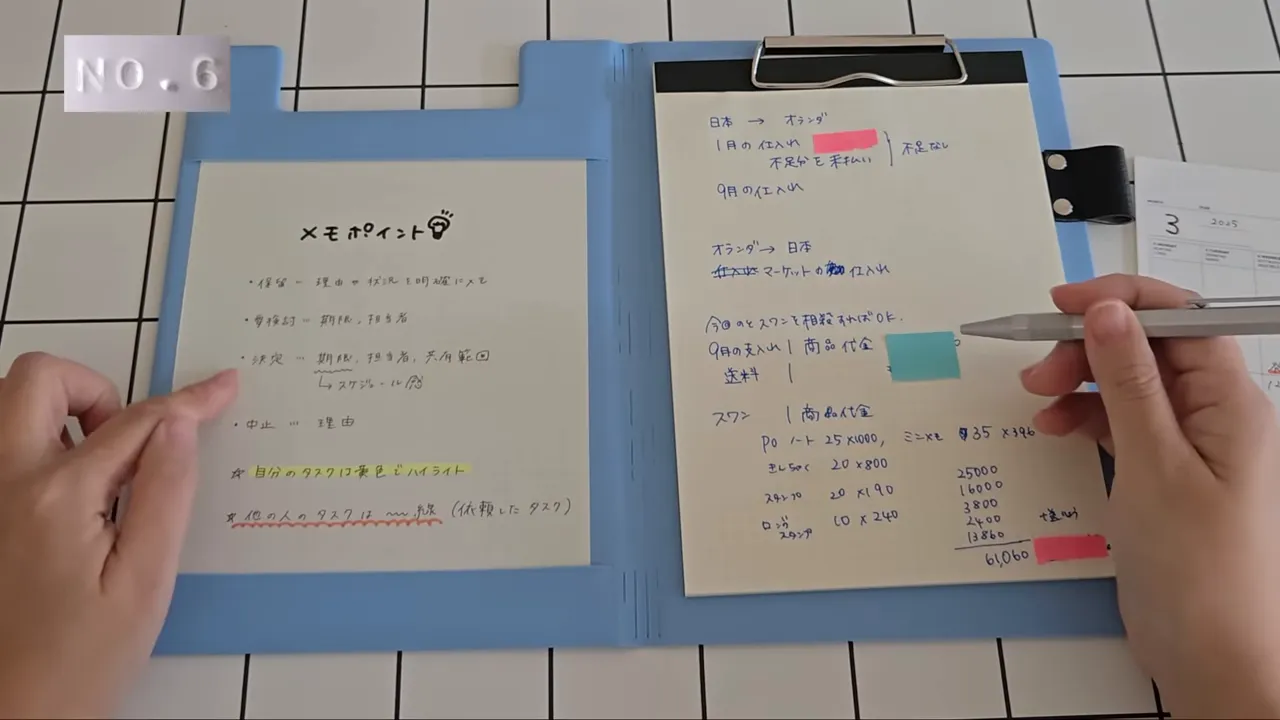 NO.6
メモポイント
・保留 … 理由や状況を明確にメモ
・要検討 … 期限、担当者
・決定 … 期限、担当者、共有範囲
↳スケジュール
・中止 … 理由
☆ 自分のタスクは黄色でハイライト
☆ 他の人のタスクは 〜〜 線 (依頼したタスク)
日本 → オランダ
1月の仕入れ
不足分を未払い
不足なし
9月の仕入れ
オランダ → 日本
マーケットの 仕入れ
今回のとスワンを相殺すればOK.
9月の支入れ | 商品代金
送料 |
スワン | 商品代金
PO ノート 25×1000, ミニメモ 35×396
きんちゃく 20×800
スタンプ 20×190
ロングスタンプ 10×240
25000
16000
3800
2400
13860
61,060
3
2025